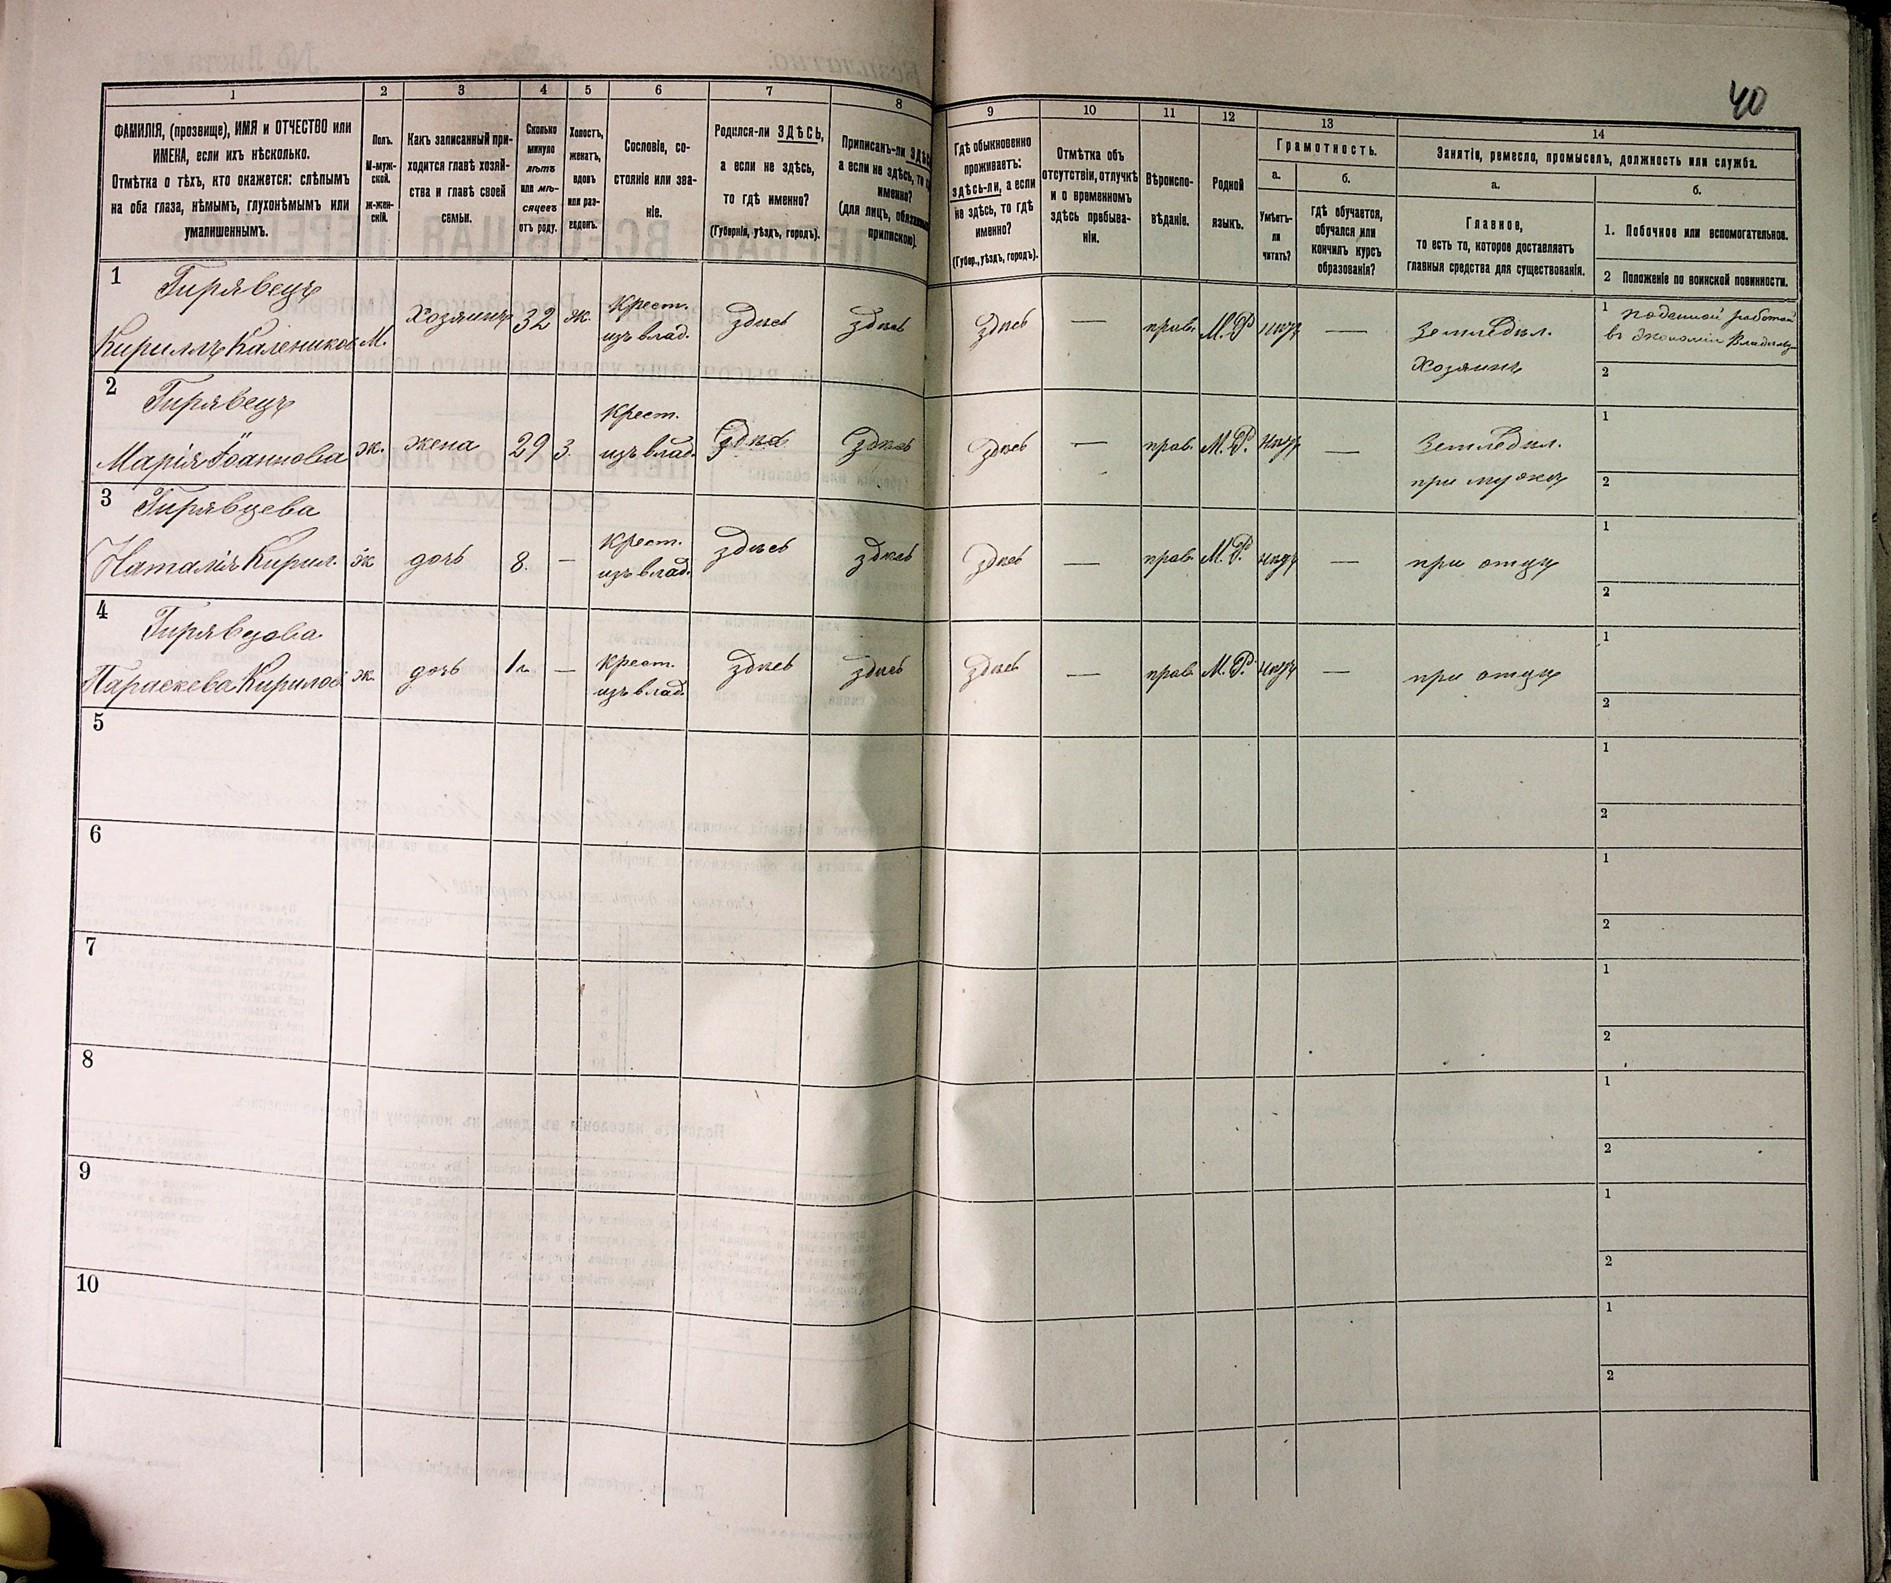 40
1 2 3 4 5 6 7 8 9 10 11 12 13 14
ФАМИЛІЯ, (прозвище), ИМЯ и ОТЧЕСТВО или
ИМЕНА, если ихъ нѣсколько.
Отмѣтка о тѣхъ, кто окажется: слѣпымъ
на оба глаза, нѣмымъ, глухонѣмымъ или
умалишеннымъ.
Полъ.
М-муж-
ской.
ж-жен-
скій.
Какъ записанный при-
ходится главѣ хозяй-
ства и главѣ своей
семьи.
Сколько
минуло
лѣтъ
или мѣ-
сяцевъ
отъ роду.
Холостъ,
женатъ,
вдовъ
или раз-
веденъ.
Сословіе, со-
стояніе или зва-
ніе.
Родился-ли ЗДѢСЬ,
а если не здѣсь,
то гдѣ именно?
(Губернія, уѣздъ, городъ).
Приписанъ-ли ЗДѢСЬ
а если не здѣсь, то
именно?
(для лицъ,
припискою).
Гдѣ обыкновенно
проживаетъ:
здѣсь-ли, а если
не здѣсь, то гдѣ
именно?
(Губер., уѣздъ, городъ).
Отмѣтка объ
отсутствіи, отлучкѣ
и о временномъ
здѣсь пребыва-
ніи.
Вѣроиспо-
вѣданіе.
Родной
языкъ.
Грамотность.
а.
Умѣетъ-
ли
читать?
б.
гдѣ обучается,
обучался или
кончилъ курсъ
образованія?
Занятіе, ремесло, промыселъ, должность или служба.
а.
Главное,
то есть то, которое доставляетъ
главныя средства для существованія.
б.
1. Побочное или вспомогательное.
2 Положеніе по воинской повинности.
1 Гирявецъ
Кириллъ Калеников М. Хозяинъ 32 ж. Крест. изъ влад. здѣсь здѣсь здѣсь — прав. М.Р. нѣтъ — Земледѣл. Хозяинъ
1 поденной работой
въ экономіи
2
2 Гирявецъ
Марія Іоаннова ж. жена 29 з. Крест. изъ влад. здѣсь здѣсь здѣсь — прав. М.Р. нѣтъ — Земледѣл. при мужѣ
1
2
3 Гирявцева
Наталія Кирил. ж дочь 8. — Крест. изъ влад. здѣсь здѣсь здѣсь — прав. М.Р. нѣтъ — при отцѣ
1
2
4 Гирявцова
Параскева Кирилов ж. дочь 1 г. — Крест. изъ влад. здѣсь здѣсь здѣсь — прав. М.Р. нѣтъ — при отцѣ
1
2
5
1
2
6
1
2
7
1
2
8
1
2
9
1
2
10
1
2